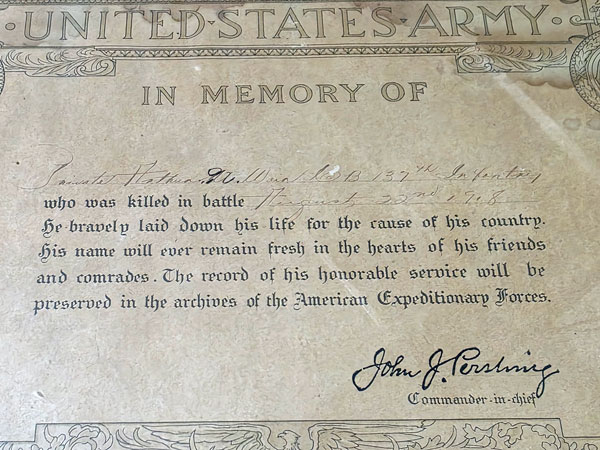 · UNITED · STATES · ARMY ·
IN MEMORY OF
Private Nathan W. Co B 137th Infantry
who was killed in battle August 22nd 1918
He bravely laid down his life for the cause of his country.
His name will ever remain fresh in the hearts of his friends
and comrades. The record of his honorable service will be
preserved in the archives of the American Expeditionary Forces.
John J. Pershing
Commander-in-chief